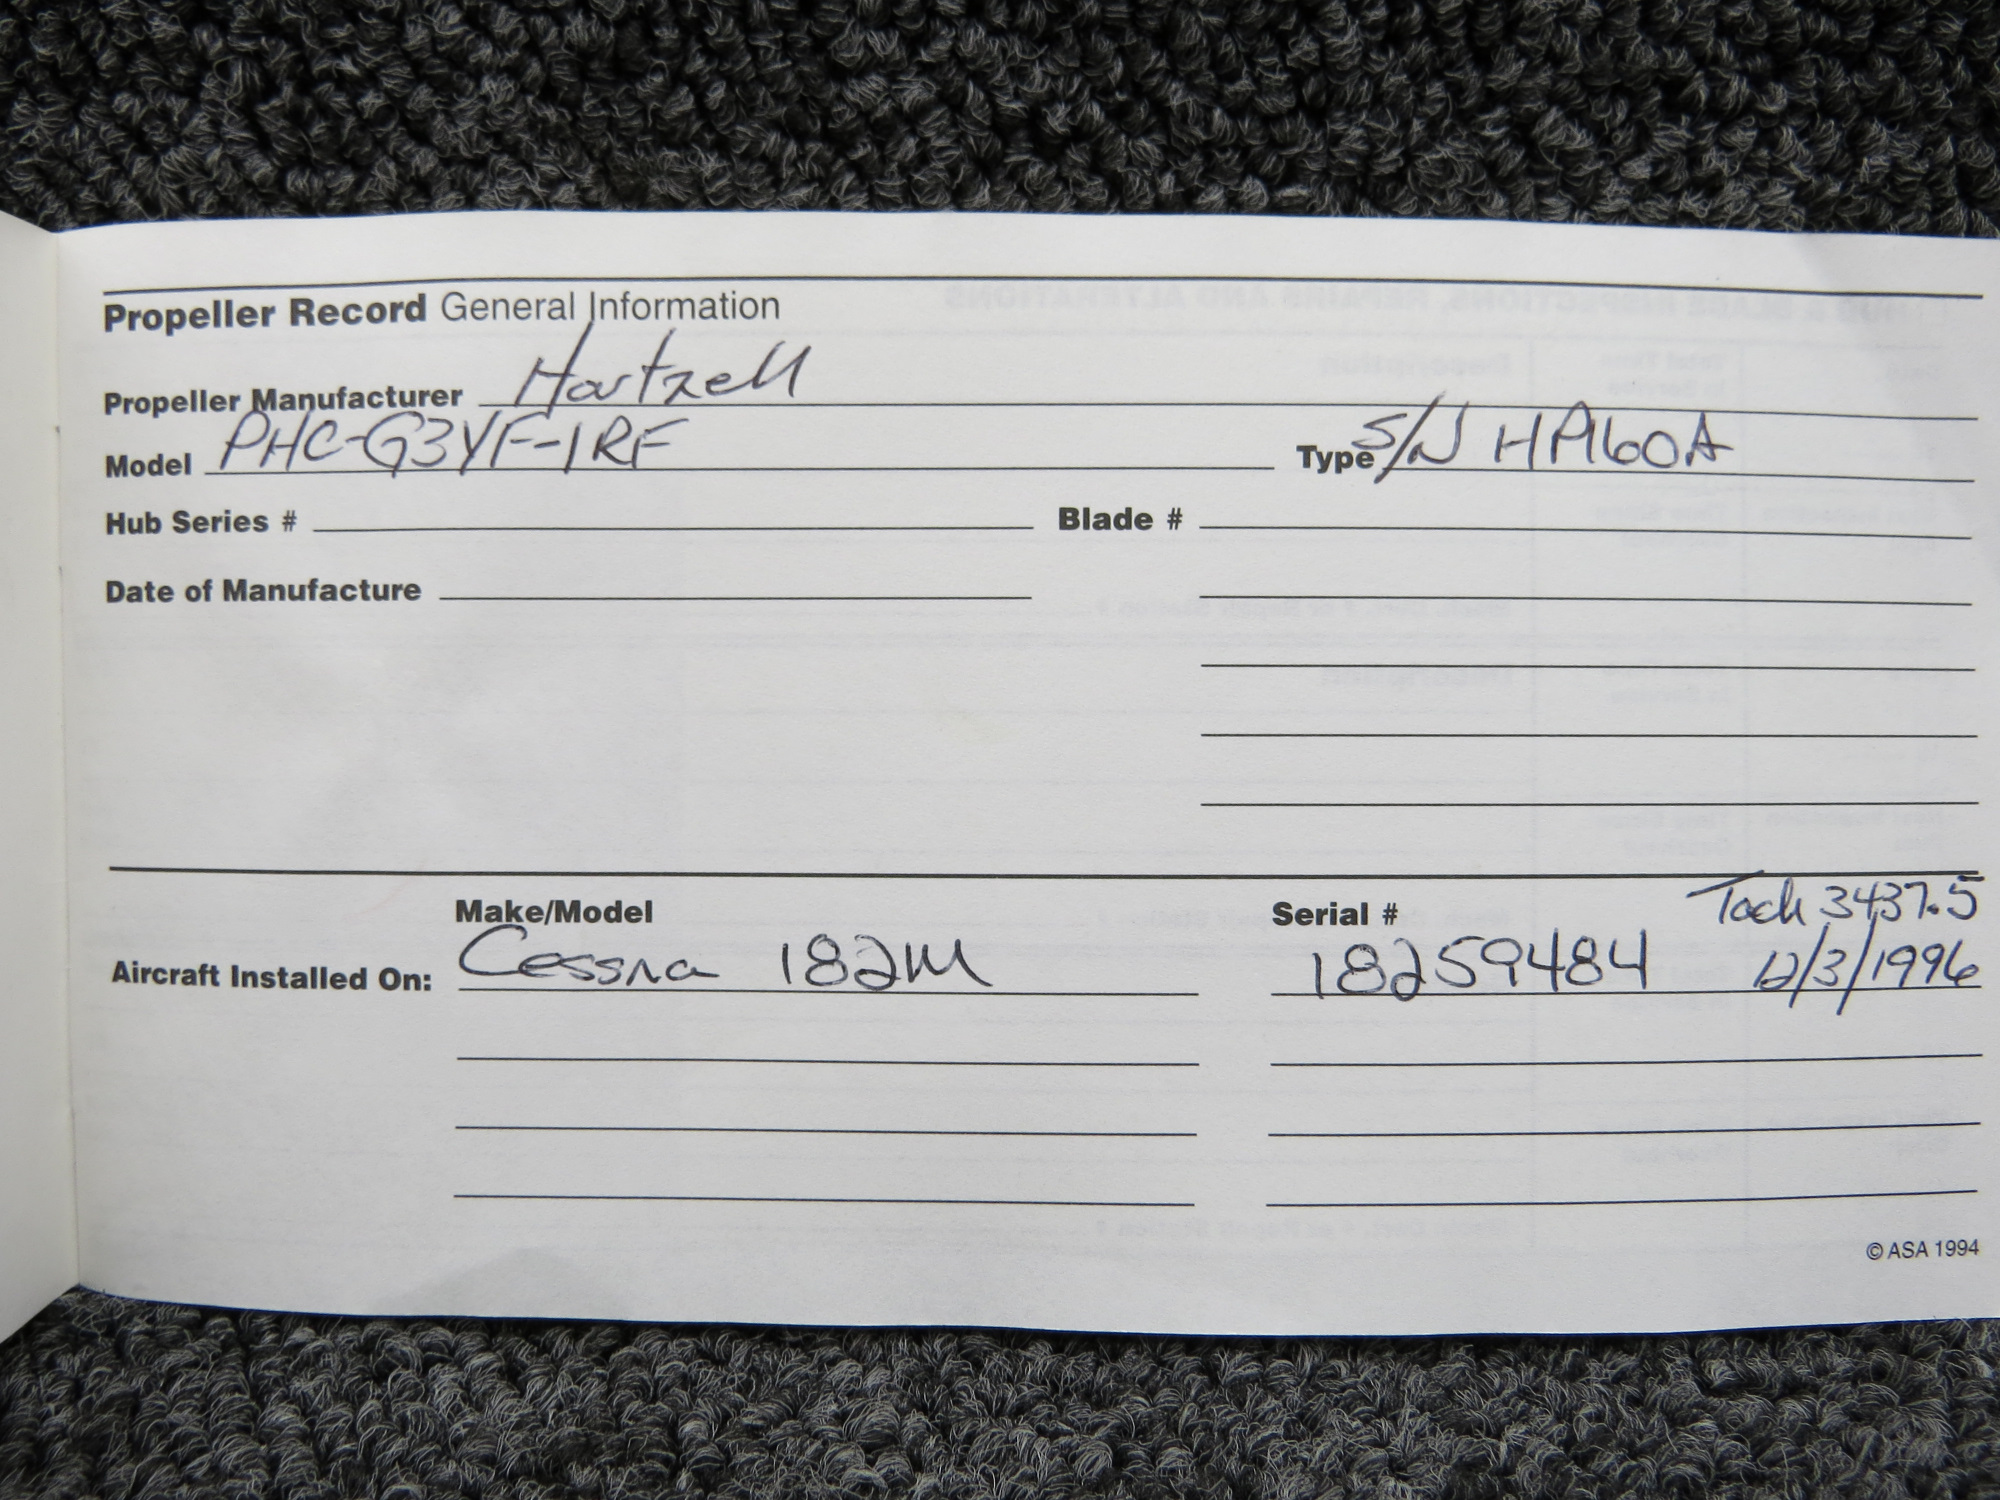 Propeller Record General Information
Propeller Manufacturer Hartzell
Model PHC-G3YF-1RF Type S/N HA160A
Hub Series # Blade #
Date of Manufacture
Make/Model Serial # Tach 3437.5
Aircraft Installed On: Cessna 182M 18259484 12/3/1996
© ASA 1994